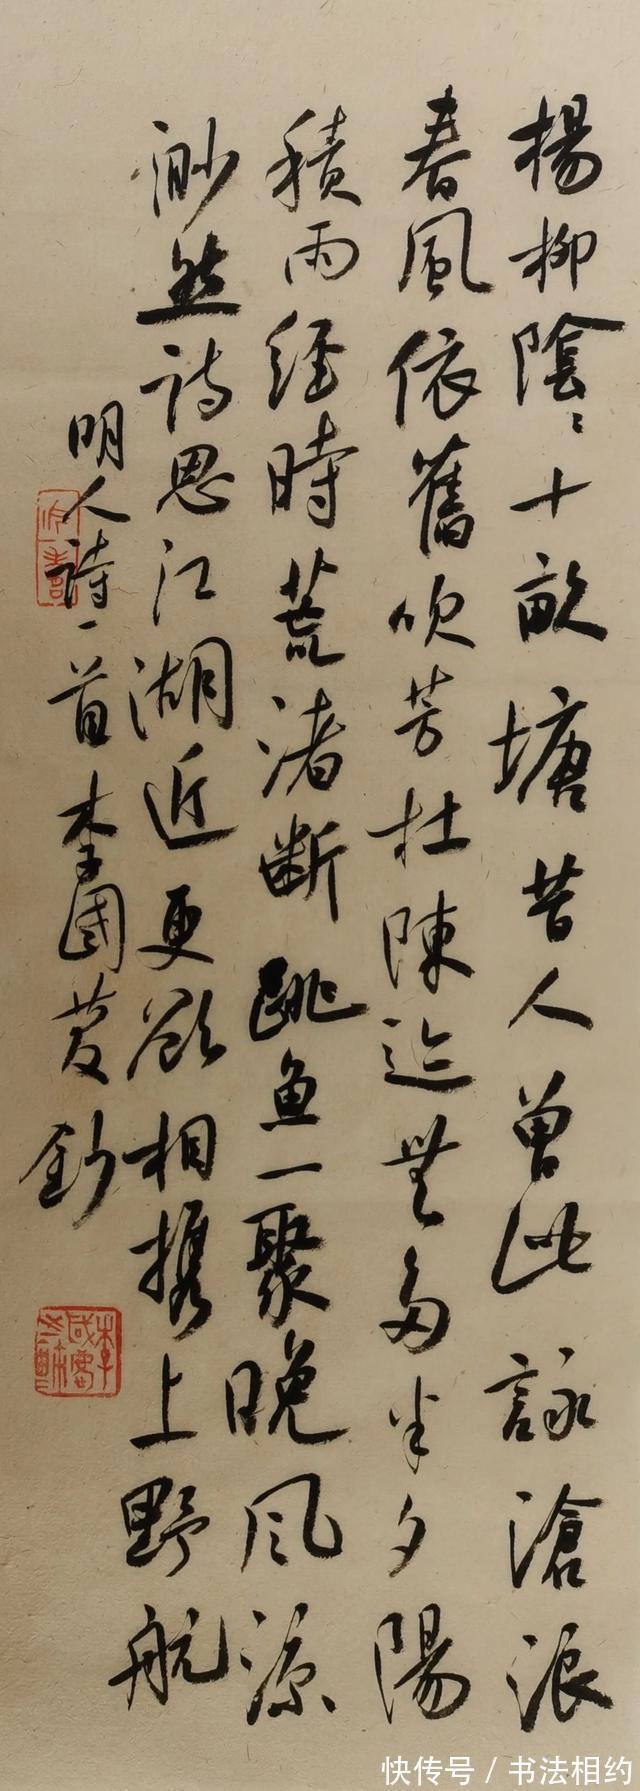 楊柳陰〻十畝塘昔人曾此詠滄浪
春風依舊吹芳杜陳迹無多半夕陽
積雨經時荒渚斷跳魚一聚晚風涼
渺然詩思江湖近更欲相攜上野航
明人詩一首李國慶鈔
快传号/书法相约